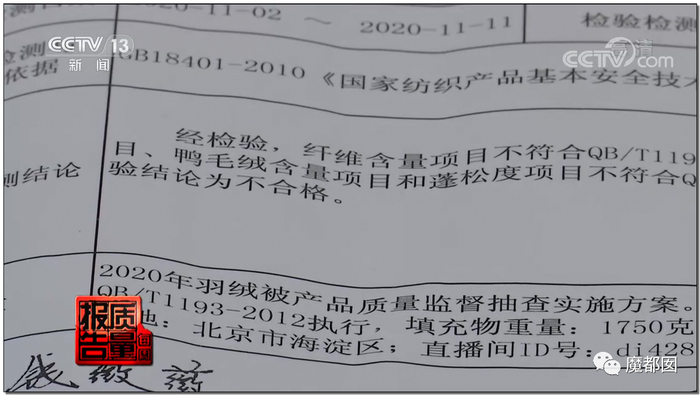 2020-11-02 ～ 2020-11-11 检验检测
CCTV 13
新闻
高清
CCTV.com
检测
依据
GB18401-2010《国家纺织产品基本安全技
经检验，纤维含量项目不符合QB/T119
测结论
目、鸭毛绒含量项目和蓬松度项目不符合Q
验结论为不合格。
2020年羽绒被产品质量监督抽查实施方案。
QB/T1193-2012执行，填充物重量：1750克
地：北京市海淀区；直播间ID号：di428
质量
报告
魔都囡